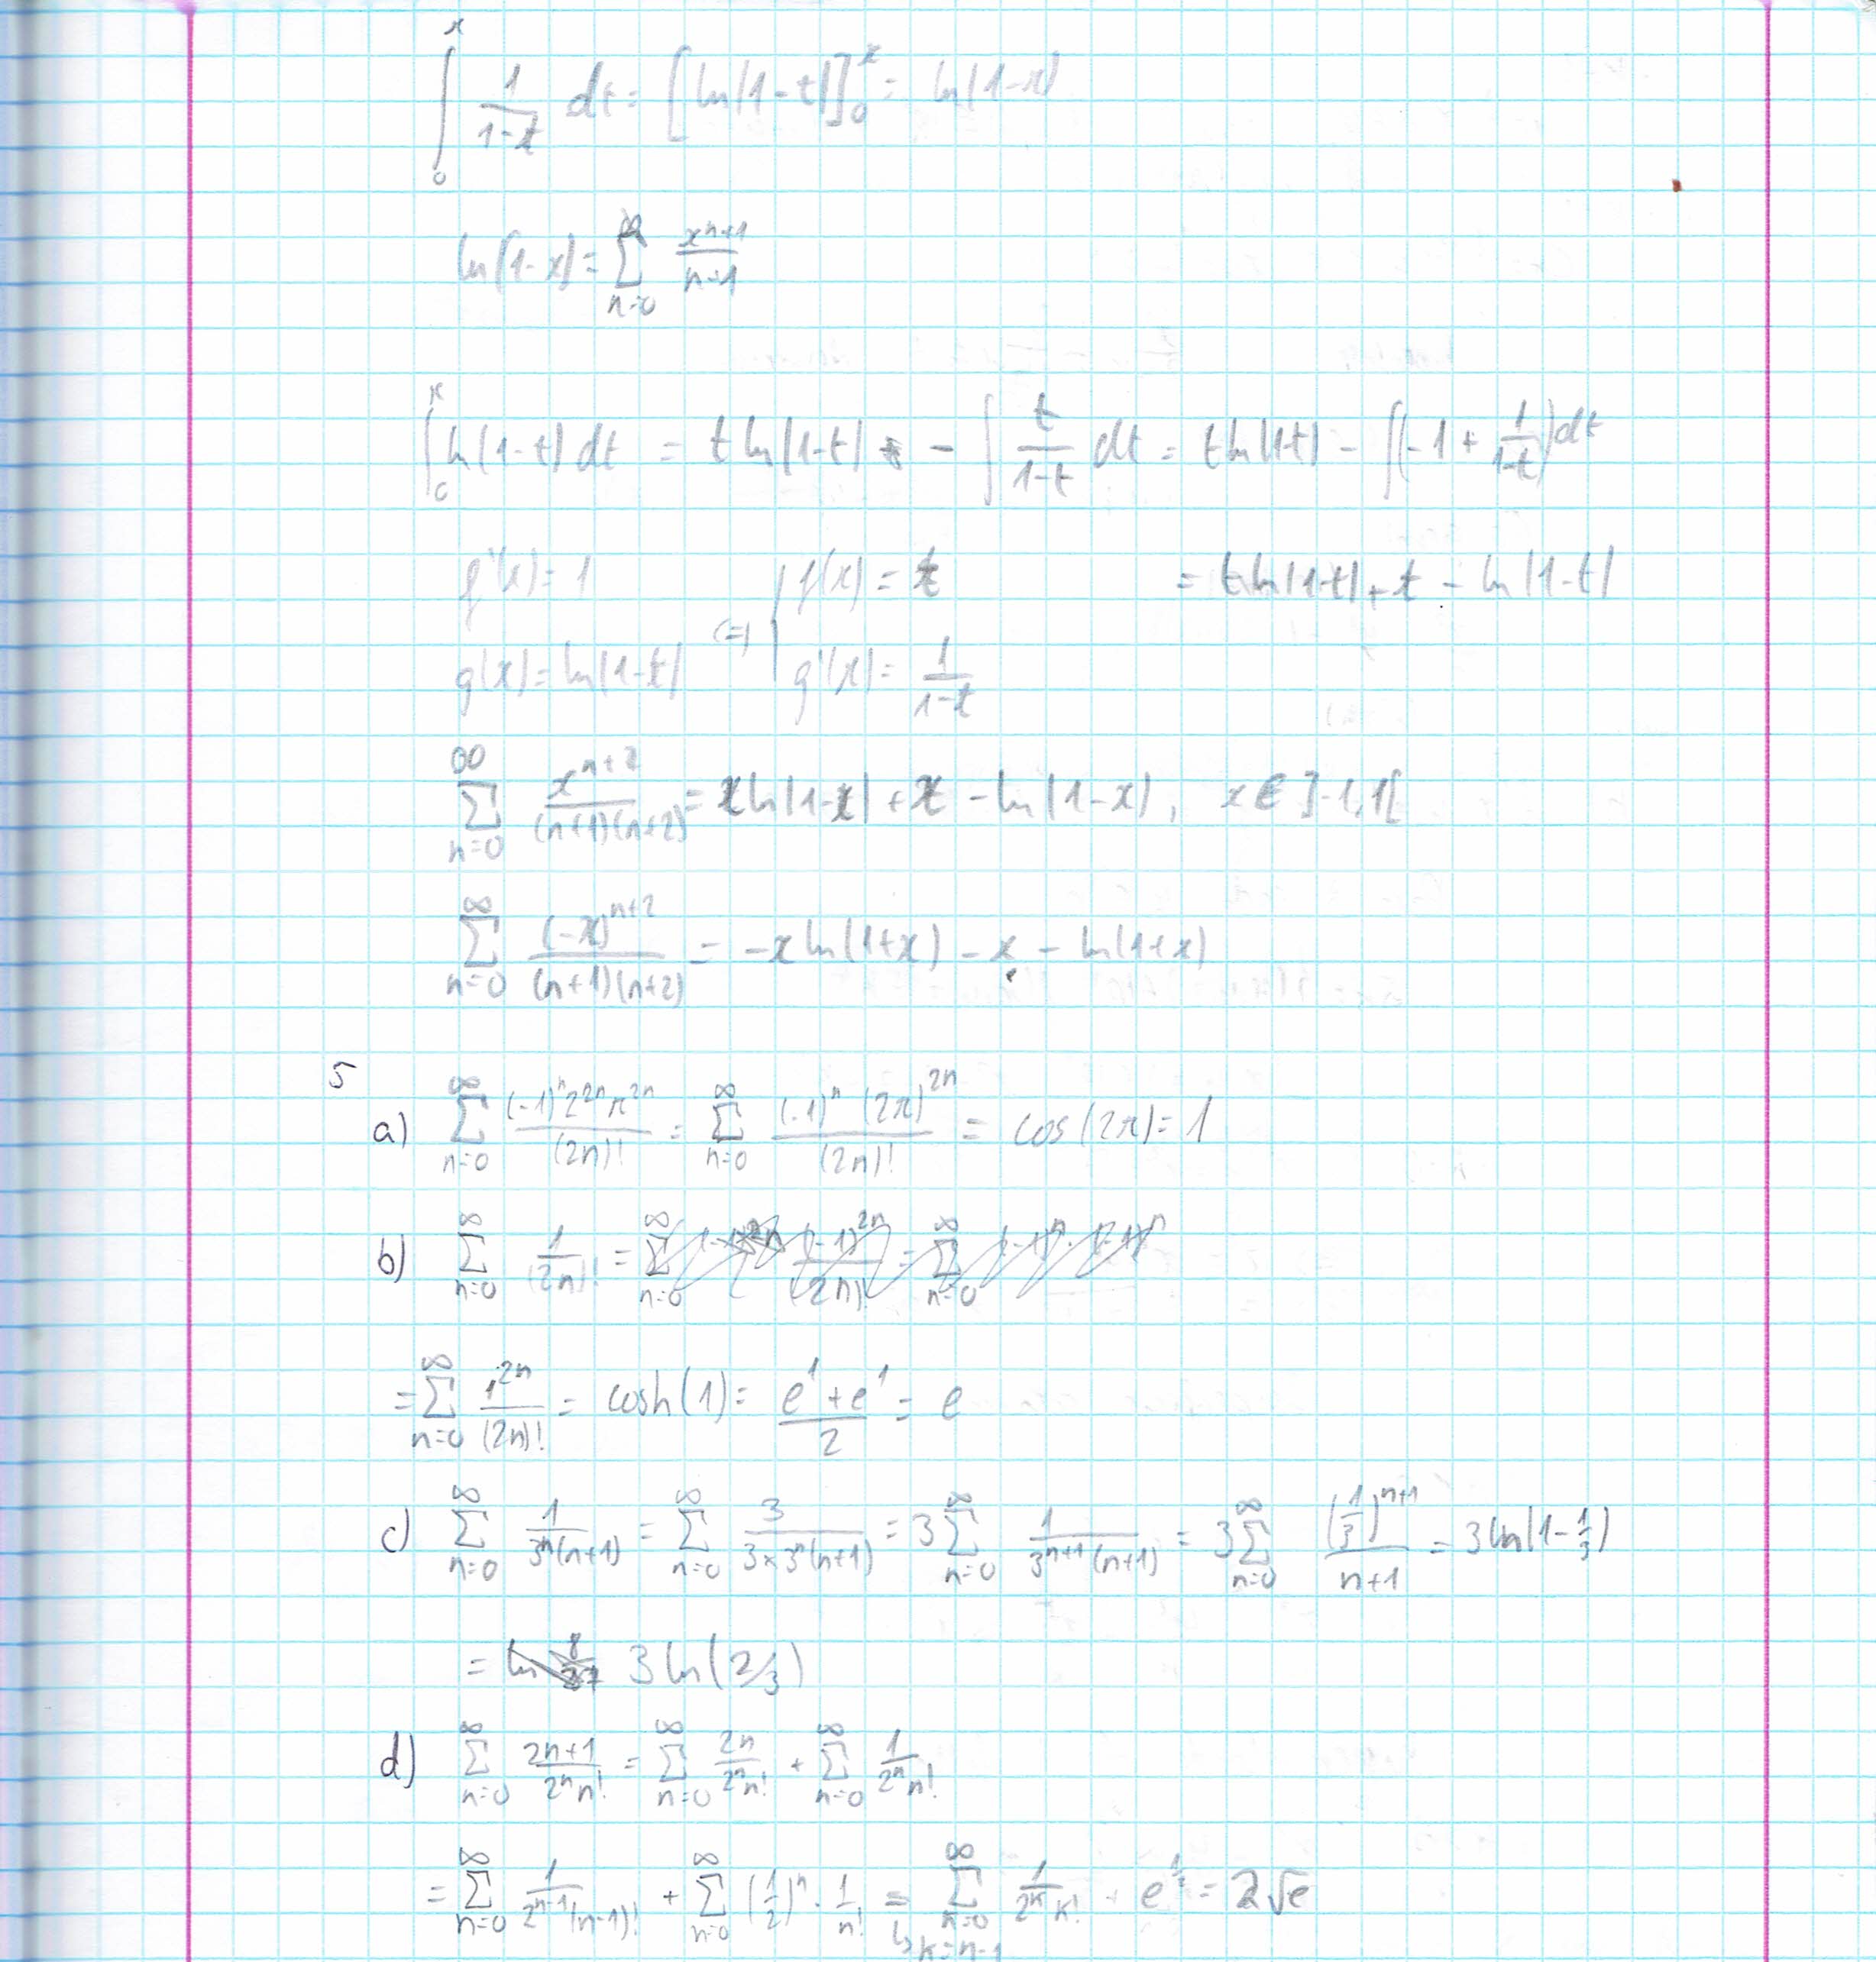 ∫₀ˣ 1/(1-t) dt = [ln|1-t|]₀ˣ = ln(1-x)
ln(1-x) = ∑_{n=0}^{∞} x^{n+1}/(n+1)
∫₀ˣ ln(1-t) dt = t ln|1-t| - ∫ t/(1-t) dt = t ln(1-t) - ∫(-1 + 1/(1-t)) dt
f'(x) = 1 f(x) = t = t ln|1-t| + t - ln|1-t|
(=)
g(x) = ln|1-t| g'(x) = 1/(1-t)
∑_{n=0}^{∞} x^{n+2}/((n+1)(n+2)) = x ln|1-x| + x - ln(1-x), x ∈ ]-1,1[
∑_{n=0}^{∞} (-x)^{n+2}/((n+1)(n+2)) = -x ln(1+x) - x - ln(1+x)
5
a) ∑_{n=0}^{∞} (-1)^n 2^{2n} π^{2n}/(2n)! = ∑_{n=0}^{∞} (-1)^n (2π)^{2n}/(2n)! = cos(2π) = 1
b) ∑_{n=0}^{∞} 1/(2n)! =
= ∑_{n=0}^{∞} 1^{2n}/(2n)! = cosh(1) = (e^1 + e^1)/2 = e
c) ∑_{n=0}^{∞} 1/(3^n(n+1)) = ∑_{n=0}^{∞} 3/(3×3^n(n+1)) = 3∑_{n=0}^{∞} 1/(3^{n+1}(n+1)) = 3∑_{n=0}^{∞} (1/3)^{n+1}/(n+1) = 3 ln(1-1/3)
= 3 ln(2/3)
d) ∑_{n=0}^{∞} (2n+1)/(2^n n!) = ∑_{n=0}^{∞} 2n/(2^n n!) + ∑_{n=0}^{∞} 1/(2^n n!)
= ∑_{n=0}^{∞} 1/(2^{n-1}(n-1)!) + ∑_{n=0}^{∞} (1/2)^n · 1/n! = ∑_{n=0}^{∞} 1/(2^k k!) + e^{1/2} = 2√e
↳ k=n-1